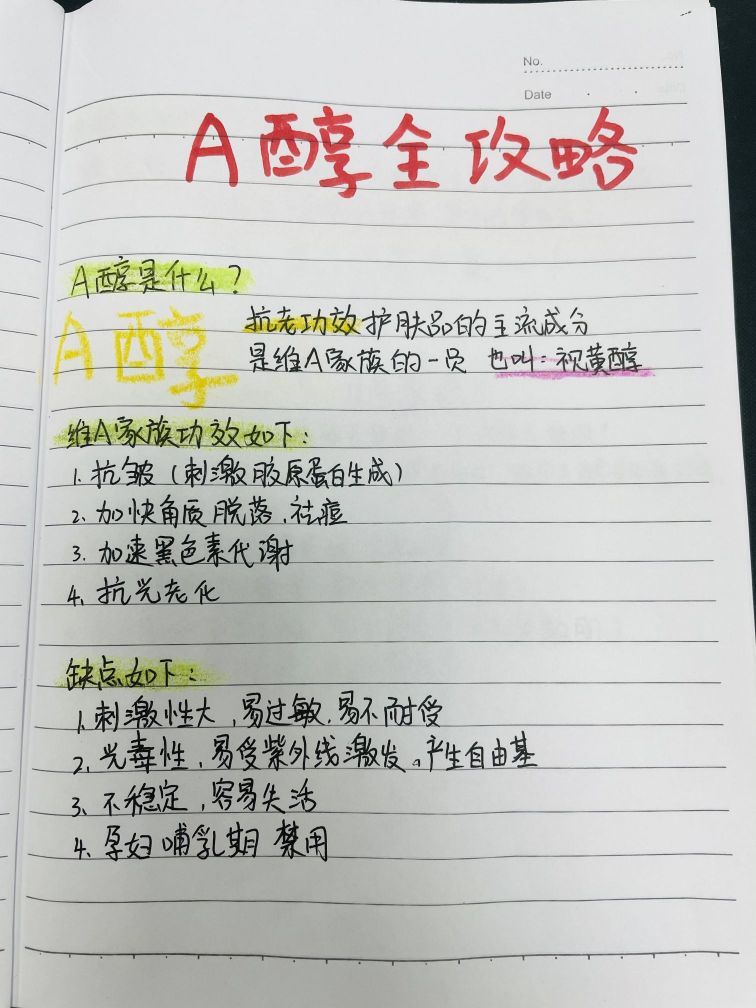 No.
Date
A醇全攻略
A醇是什么?
A醇
抗老功效护肤品的主流成分
是维A家族的一员 也叫:视黄醇
维A家族功效如下:
1. 抗皱(刺激胶原蛋白生成)
2. 加快角质脱落、祛痘
3. 加速黑色素代谢
4. 抗光老化
缺点如下:
1. 刺激性大,易过敏,易不耐受
2. 光毒性,易受紫外线激发。产生自由基
3. 不稳定,容易失活
4. 孕妇 哺乳期 禁用